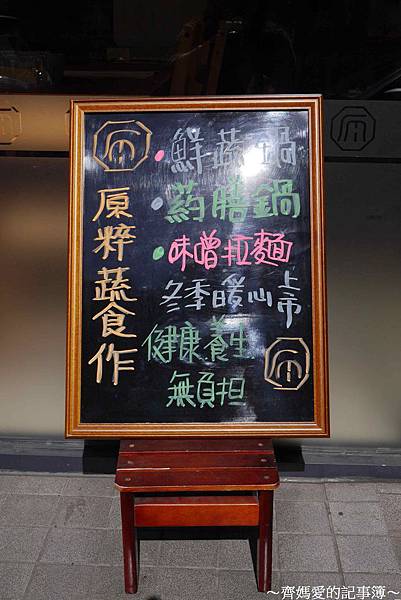 原粹蔬食作
鮮蔬鍋
药膳鍋
味噌拉麵
冬季暖心上市
健康養生
無負担
～齊媽愛的記事簿～